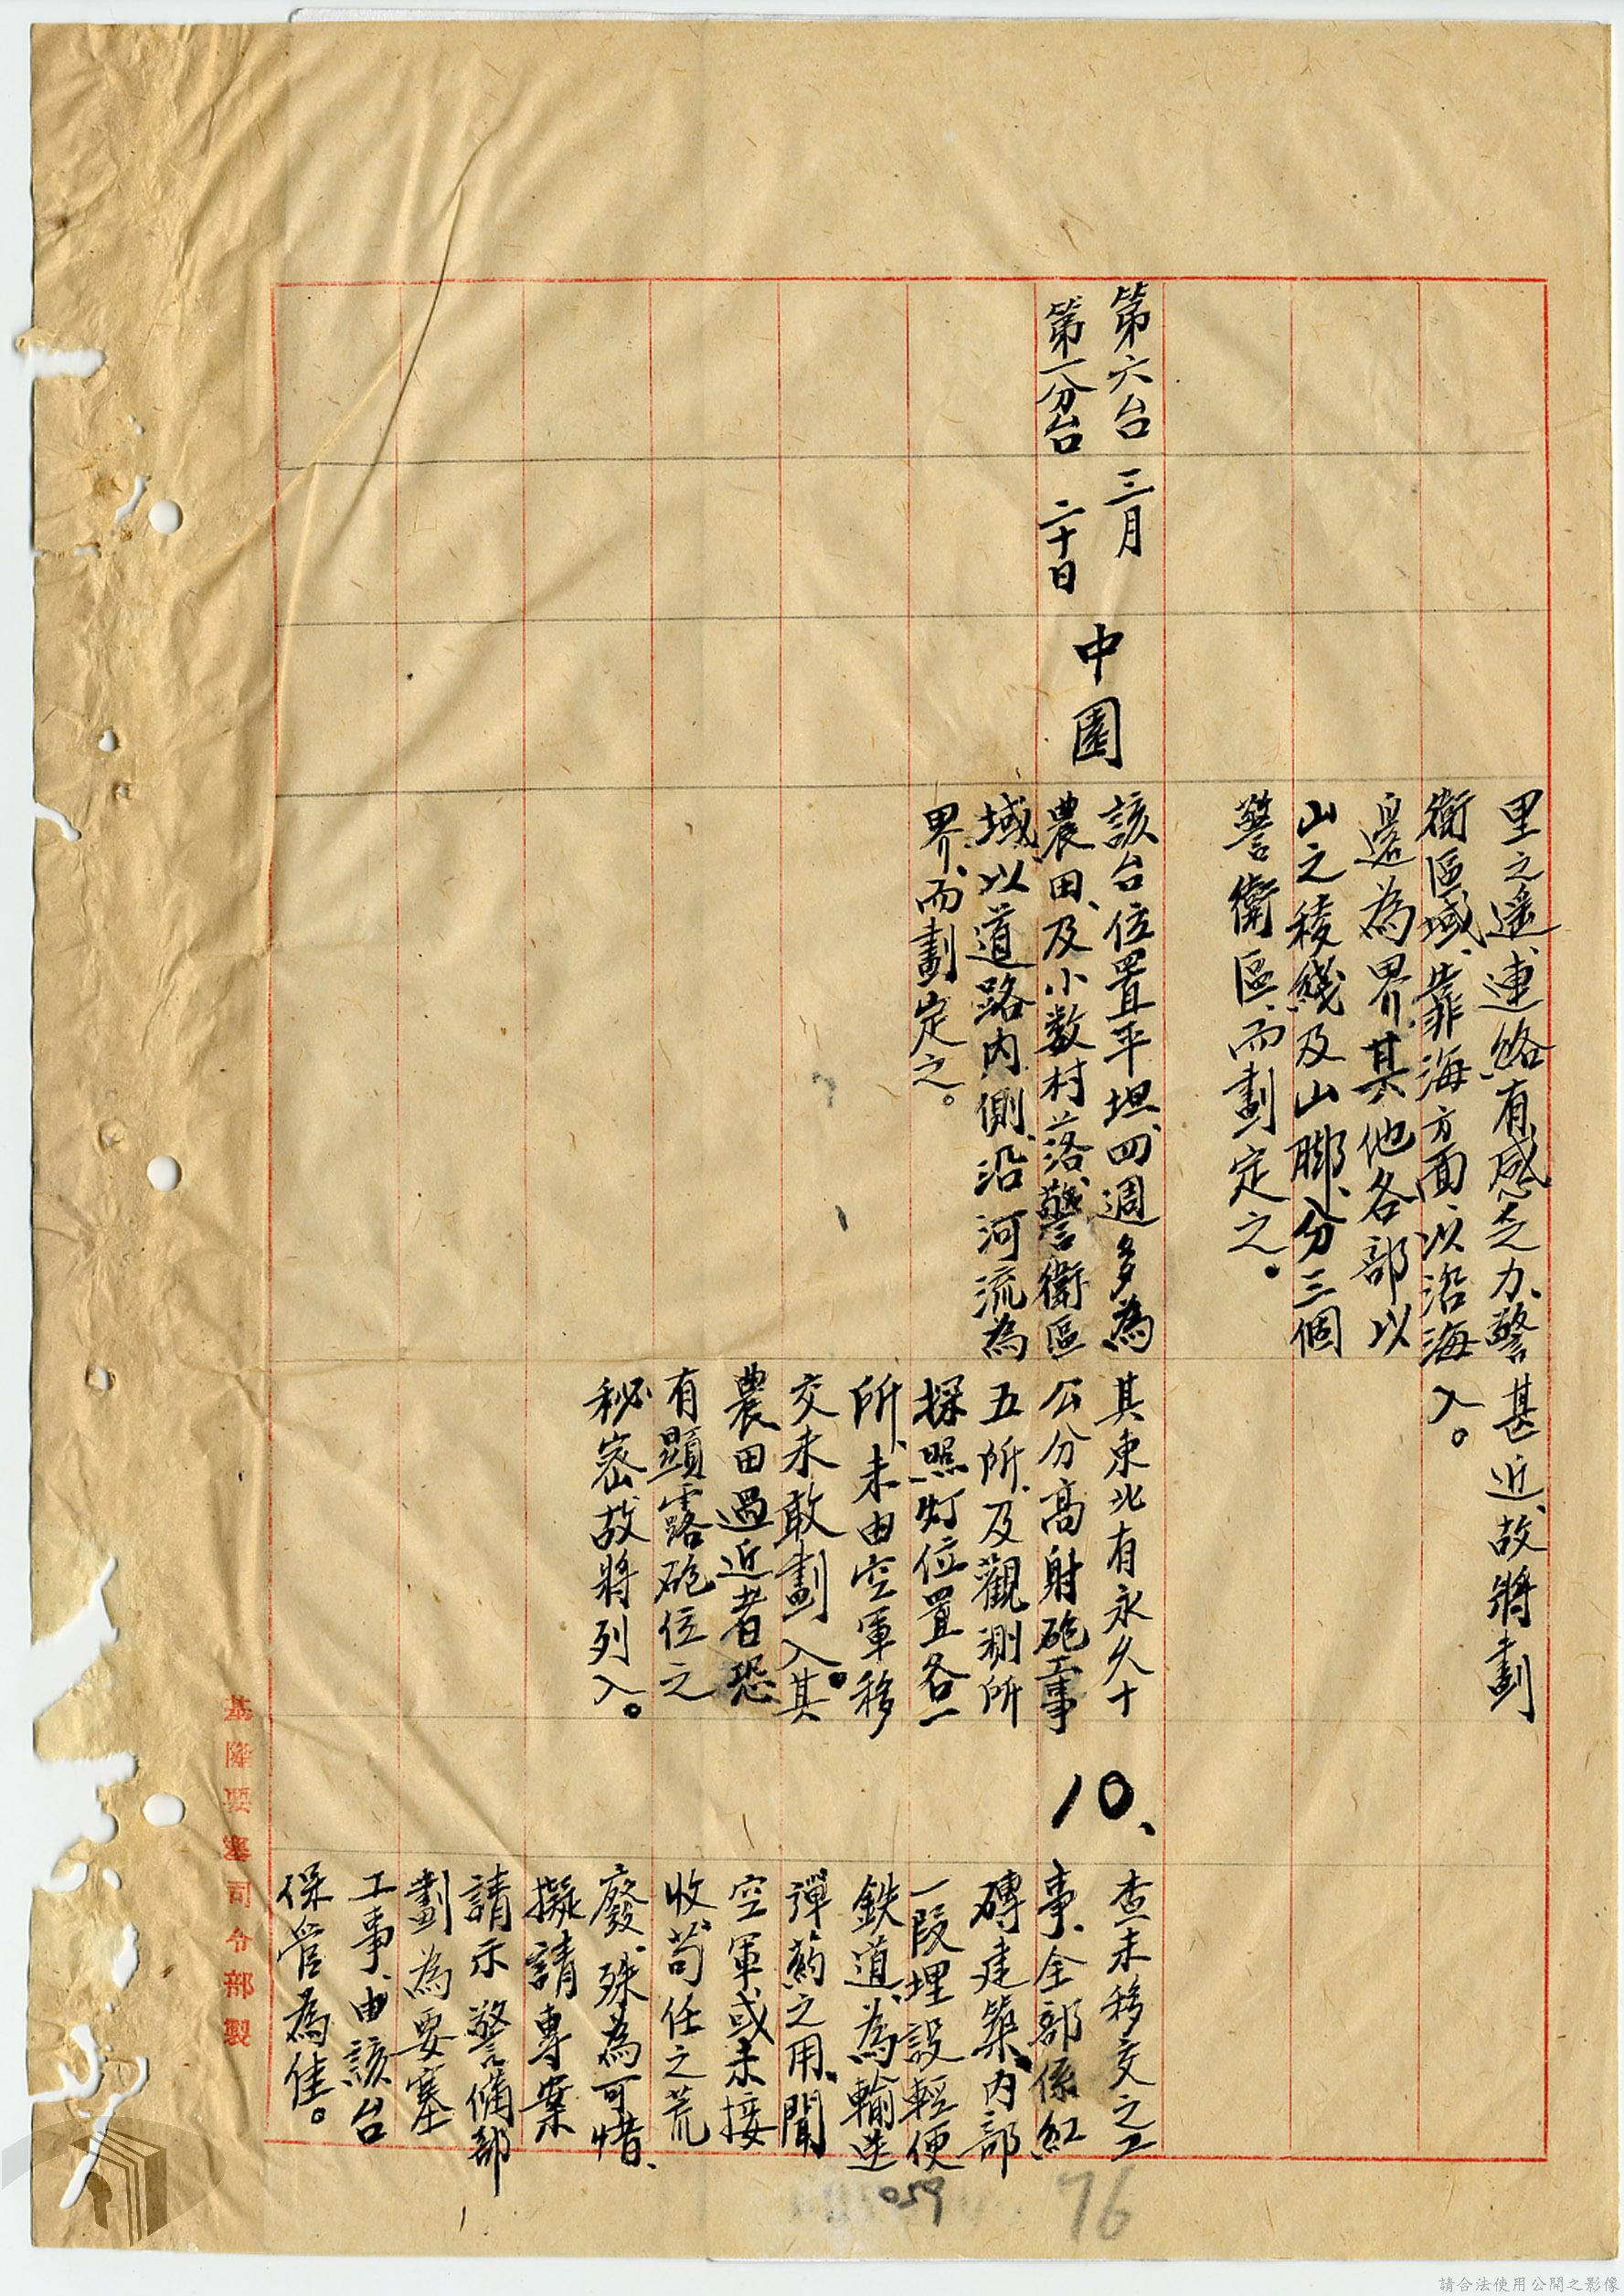 里之遥、連絡有感乏力、警
衛區域、靠海方面、以沿海
邊為界、其他各部以
山之稜綫及山腳、分三個
警衛區、而劃定之。
甚近、故將劃
入。
第六台
第一分台
三月
二十日
中園
該台位置平坦、四週多為
農田、及小数村落、警衛區
域、以道路内側、沿河流為
界、而劃定之。
其東北有永久十
公分高射砲工事
五所、及觀測所
探照灯位置各一
所、未由空軍移
交未敢劃入。其
農田過近者恐
有顯露砲位之
秘密故將列入。
10、
查未移交之工
事、全部係紅
磚建築、内部
一段埋設輕便
鉄道、為輸送
彈药之用、聞
空軍、或未接
收、苟任之荒
廢、殊為可惜、
擬請專案
請示警備部
劃為要塞
工事、由該台
保管為佳。
基隆要塞司令部製
059
76
請合法使用公開之影像